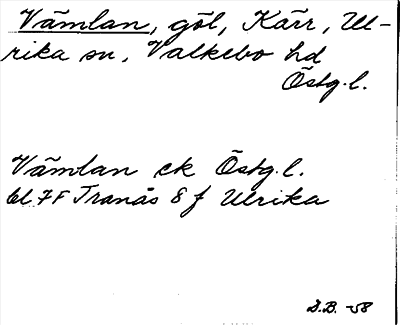 Vämlan, göl, Kärr, Ul-
rika sn, Valkebo hd
Östg.l.
Vämlan ek Östg.l.
bl. 7F Tranås 8 f Ulrika
D.B. -58